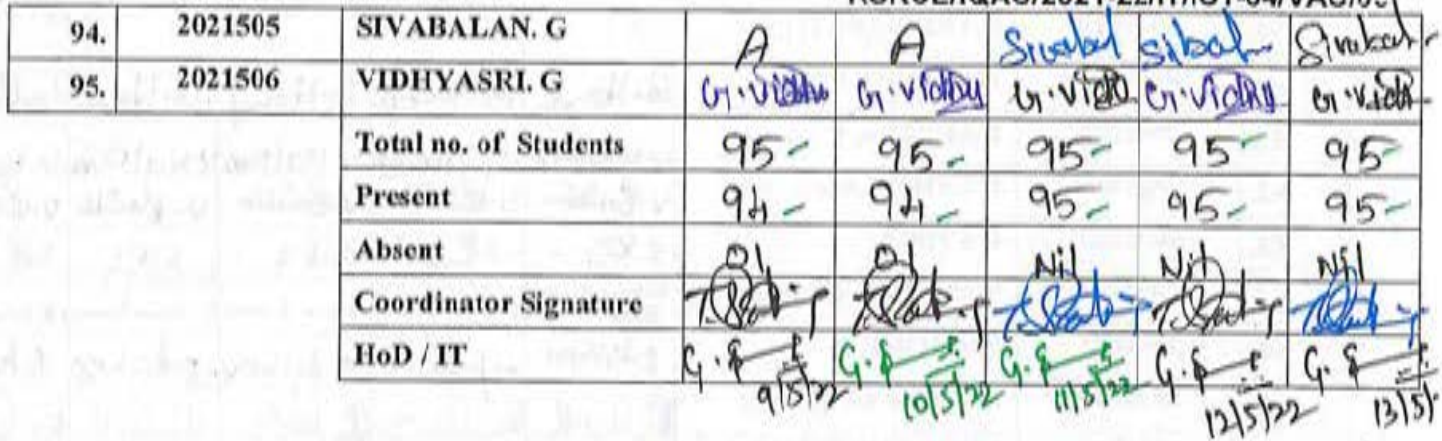 94. 2021505 SIVABALAN. G A A Sivabal sibal Sivabal
95. 2021506 VIDHYASRI. G G.Vidhy G.Vidhy G.Vidh G.Vidhy G.Vidh
Total no. of Students 95 95 95 95 95
Present 94 94 95 95 95
Absent 01 01 Nil Nil Nil
Coordinator Signature
HoD / IT
9/5/22 10/5/22 11/5/22 12/5/22 13/5/